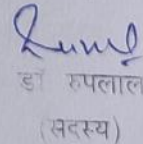 डॉ रुपलाल
(सदस्य)